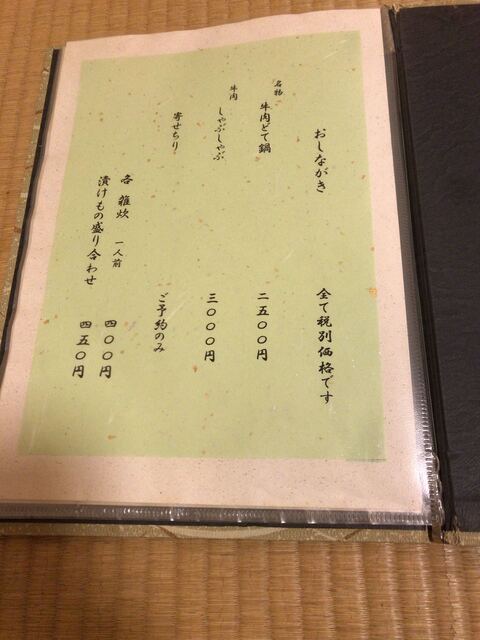 おしながき
全て税別価格です
名物 牛肉どて鍋
二五〇〇円
牛肉 しゃぶしゃぶ
三〇〇〇円
寄せちり
ご予約のみ
各 雑炊 一人前
四〇〇円
漬けもの盛り合わせ
四五〇円